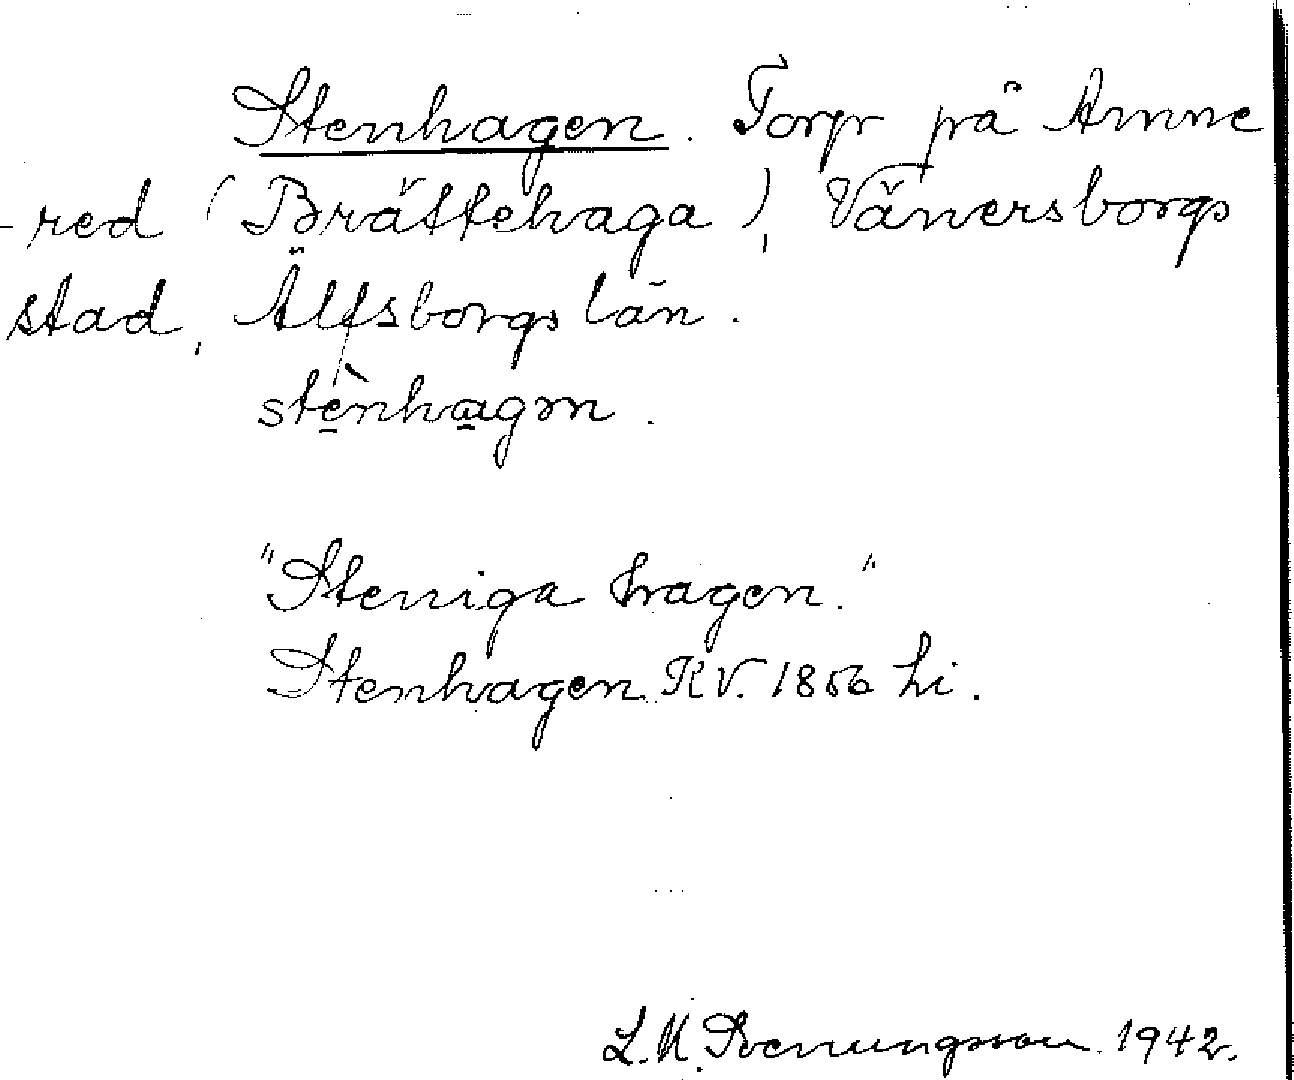 Stenhagen. Torp på Anne
-red (Brättehaga), Vänersborgs
stad, Älfsborgs län.
stènhagən.
"Steniga hagen."
Stenhagen KV. 1856 hi.
L.M. Svenungsson 1942.